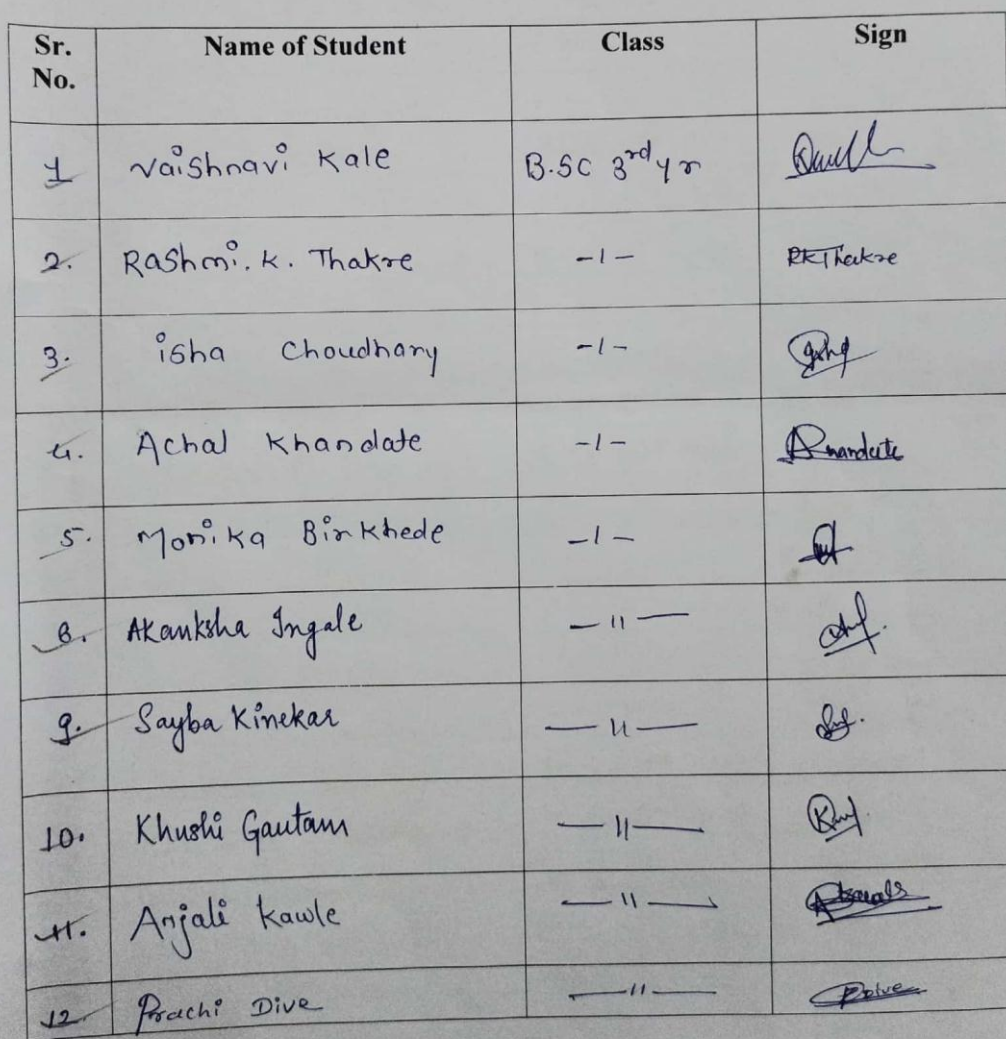 Sr. No. Name of Student Class Sign
1 Vaishnavi Kale B.SC 3rd yr
2. Rashmi. K. Thakre -1- RKThakre
3. isha Choudhary -1-
4. Achal Khandate -1-
5. Monika Birkhede -1-
8. Akanksha Ingale —11—
9. Sayba Kinekar —11—
10. Khushi Gautam —11—
11. Anjali Kawle —11—
12. Prachi Dive —11— PDive